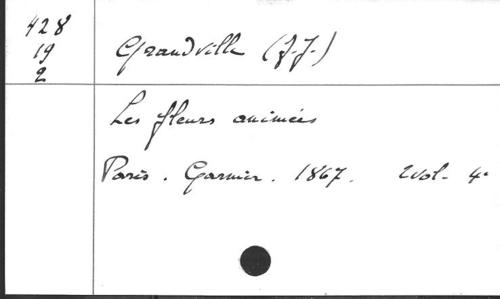 428
19
2
Grandville (J.J.)
Les fleurs animées
Paris. Garnier. 1867. 2 vol. 4°